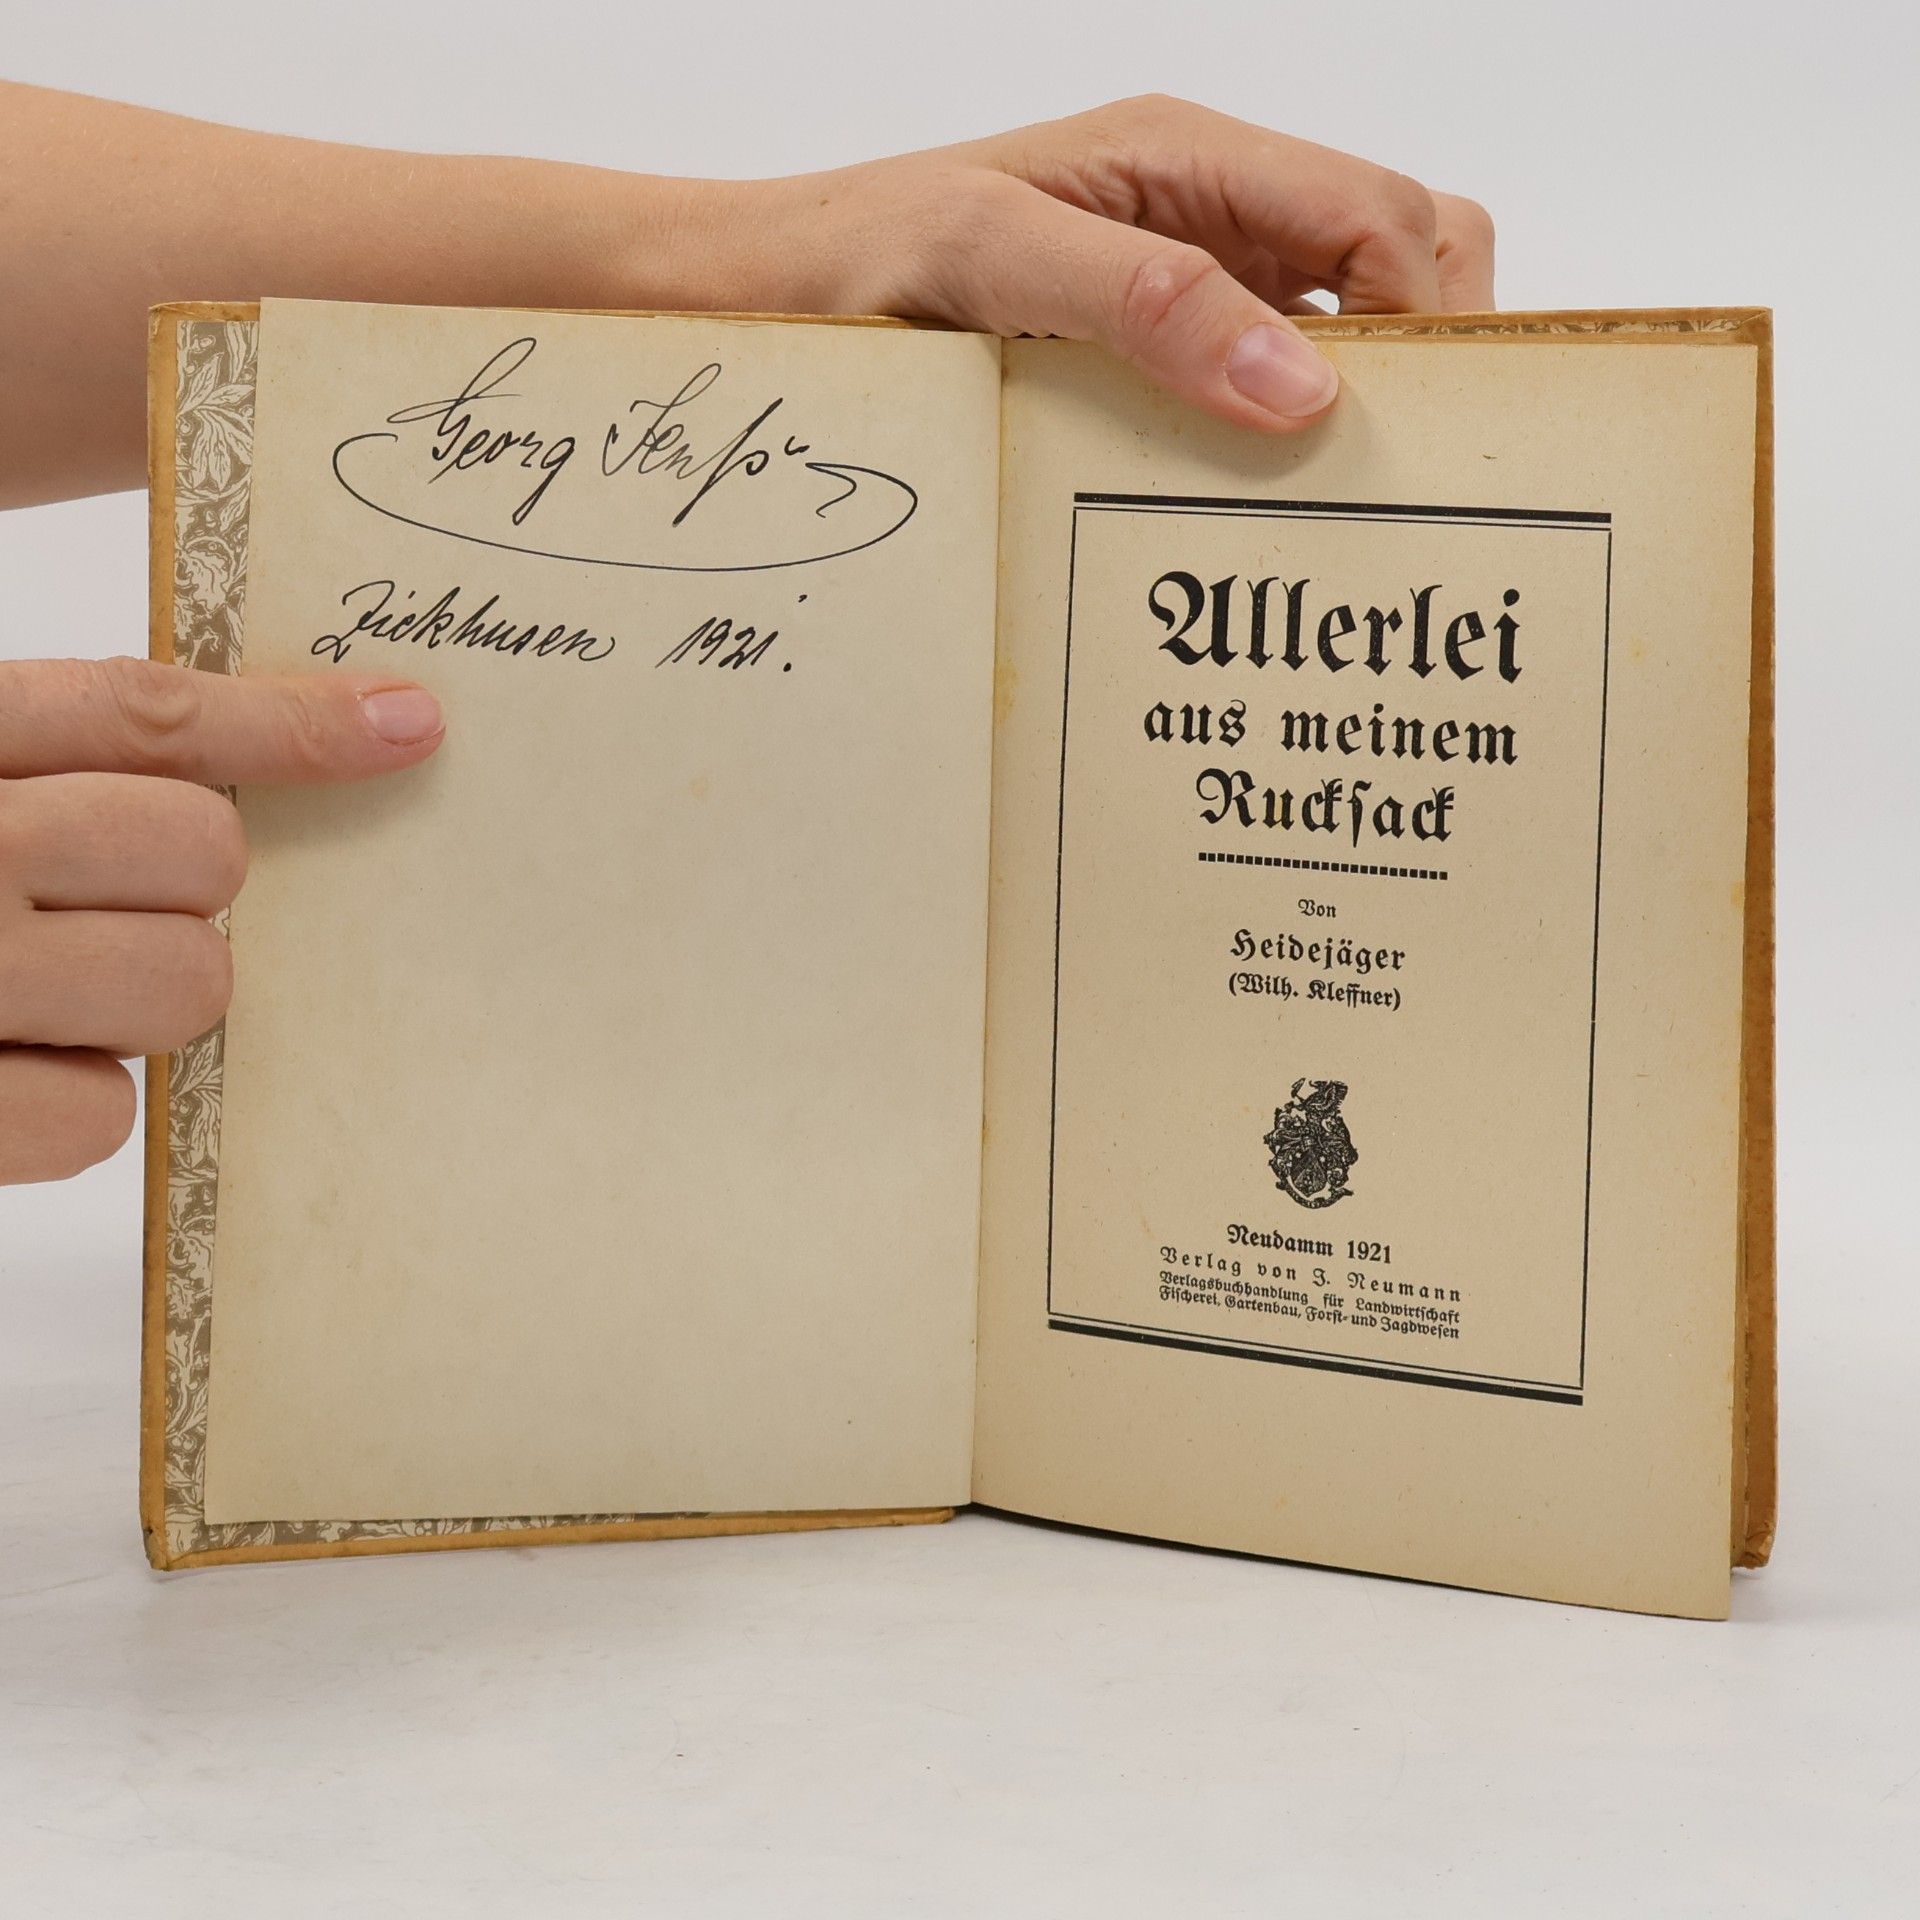 Georg
Zickhusen 1921.
Allerlei
aus meinem
Rucksack
Von
Heidejäger
(Wilh. Kleffner)
Neudamm 1921
Verlag von J. Neumann
Verlagsbuchhandlung für Landwirtschaft
Fischerei, Gartenbau, Forst- und Jagdwesen